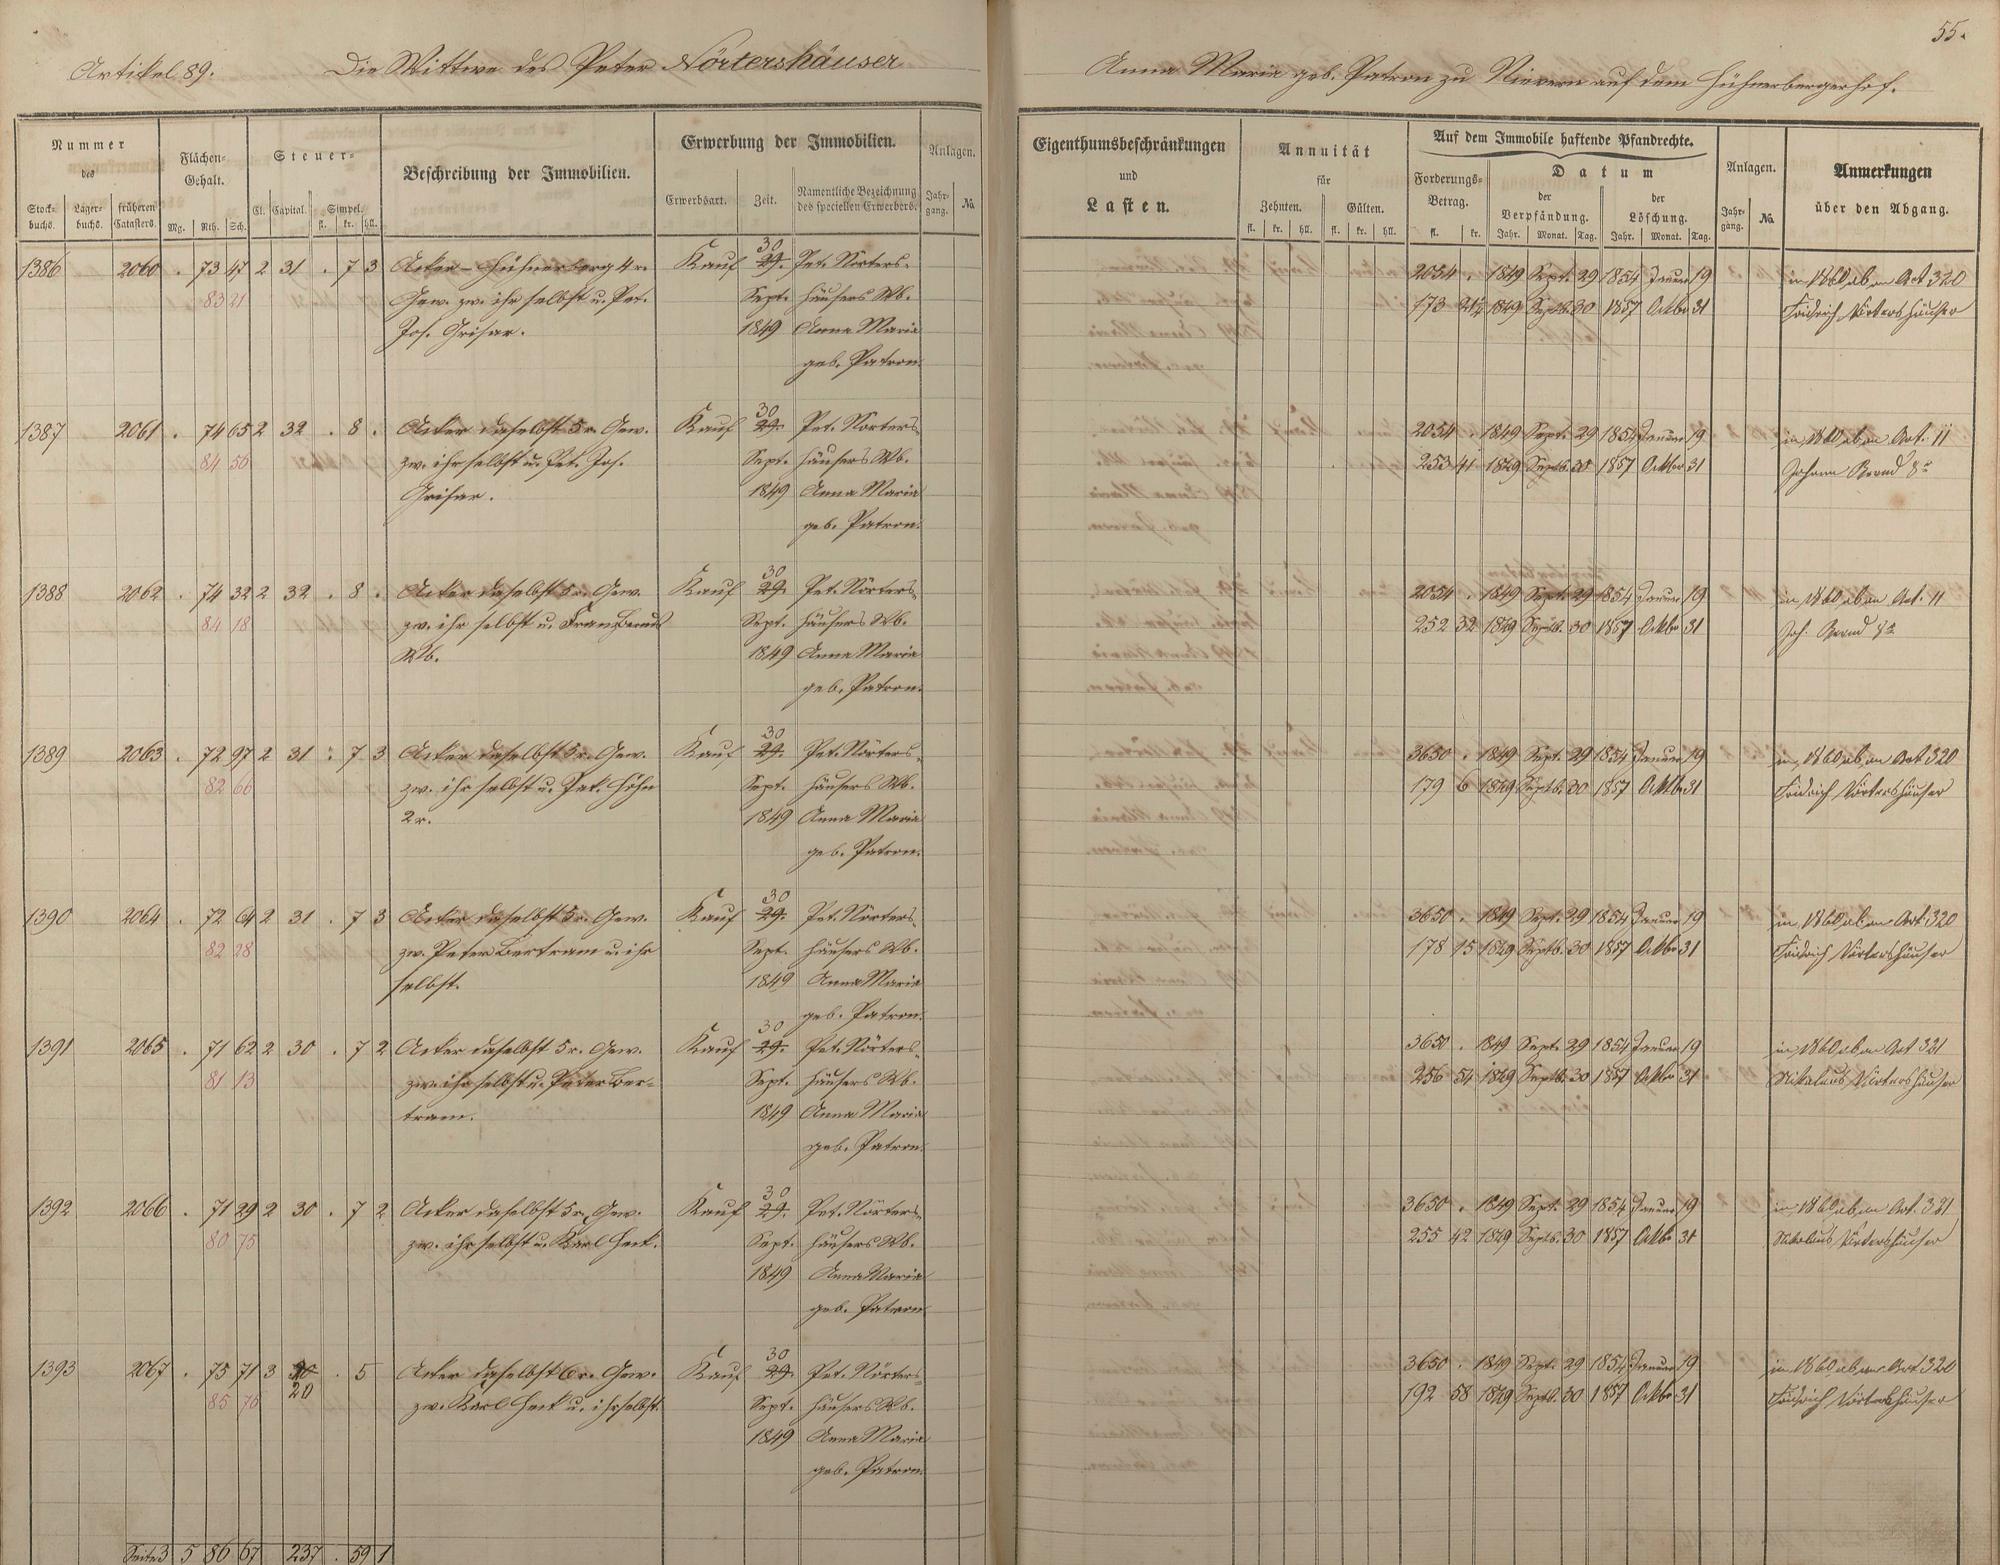 55.
Artikel 89. Die Wittwe des Peter Nörtershäuser
Anna Maria geb. Patron zu Nievern auf dem Hühnerbergerhof.
Nummer des
Stockbuchs. Lagerbuchs. früheren Catasters.
Flächen-Gehalt.
Mg. Rth. Sch.
Steuer-
Cl. Capital. Simpel.
fl. kr. hll.
Beschreibung der Immobilien.
Erwerbung der Immobilien.
Erwerbsart. Zeit. Namentliche Bezeichnung des speciellen Erwerbers.
Anlagen.
Jahrgang. No.
Eigenthumsbeschränkungen
und
Lasten.
Annuität
für
Zehnten. Gülten.
fl. kr. hll. fl. kr. hll.
Auf dem Immobile haftende Pfandrechte.
Forderungs-Betrag.
fl. kr.
Datum
der Verpfändung. der Löschung.
Jahr. Monat. Tag. Jahr. Monat. Tag.
Anlagen.
Jahrgang. No.
Anmerkungen
über den Abgang.
1386 2060 . 73 47 2 31 . 7 3 Acker - Hühnerberg 4r. Kauf 30 29. Pet. Nörters- 2054 . 1849 Sept. 29 1854 Januar 19 in 1860 ab an Art 320
83 21 Gew. zw. ihr selbst u. Pet. Sept. häusers Wb. 173 21½ 1849 Septb. 30 1857 Octbr 31 Fridrich Nörtershäuser
Jos. Grisar. 1849 Anna Maria
geb. Patron.
1387 2061 . 74 65 2 32 . 8 . Acker daselbst 5r. Gew. Kauf 30 29. Pet. Nörters- 2054 . 1849 Sept. 29 1854 Januar 19 in 1860 ab an Art. 11
84 56 zw. ihr selbst u. Pet. Jos. Sept. häusers Wb. 253 41 1849 Septb. 30 1857 Octbr 31 Johann Bernd
Grisar. 1849 Anna Maria
geb. Patron.
1388 2062 . 74 32 2 32 . 8 . Acker daselbst 5r. Gew. Kauf 30 29. Pet. Nörters- 2054 . 1849 Sept. 29 1854 Januar 19 in 1860 ab an Art. 11
84 18 zw. ihr selbst u. Franz Bernds Sept. häusers Wb. 252 32 1849 Septb. 30 1857 Octbr 31 Joh. Bernd
Wb. 1849 Anna Maria
geb. Patron.
1389 2063 . 72 97 2 31 . 7 3 Acker daselbst 5r. Gew. Kauf 30 29. Pet. Nörters- 3650 . 1849 Sept. 29 1854 Januar 19 in 1860 ab an Art 320
82 66 zw. ihr selbst u. Jak. Höhn Sept. häusers Wb. 179 6 1849 Septb. 30 1857 Octbr 31 Fridrich Nörtershäuser
2r. 1849 Anna Maria
geb. Patron.
1390 2064 . 72 64 2 31 . 7 3 Acker daselbst 5r. Gew. Kauf 30 29. Pet. Nörters- 3650 . 1849 Sept. 29 1854 Januar 19 in 1860 ab an Art. 320
82 28 zw. Peter Bertram u. ihr Sept. häusers Wb. 178 15 1849 Septb. 30 1857 Octbr 31 Fridrich Nörtershäuser
selbst. 1849 Anna Maria
geb. Patron.
1391 2065 . 71 62 2 30 . 7 2 Acker daselbst 5r. Gew. Kauf 30 29. Pet. Nörters- 3650 . 1849 Sept. 29 1854 Januar 19 in 1860 ab an Art 321
81 13 zw. ihr selbst u. Peter Ber- Sept. häusers Wb. 256 54 1849 Septb. 30 1857 Octbr 31 Nikolaus Nörtershäuser
tram. 1849 Anna Maria
geb. Patron.
1392 2066 . 71 29 2 30 . 7 2 Acker daselbst 5r. Gew. Kauf 30 29. Pet. Nörters- 3650 . 1849 Sept. 29 1854 Januar 19 in 1860 ab an Art. 321
80 75 zw. ihr selbst u. Karl Heck. Sept. häusers Wb. 255 42 1849 Septb. 30 1857 Octbr 31 Nikolaus Nörtershäuser
1849 Anna Maria
geb. Patron
1393 2067 . 75 71 3 20 . 5 Acker daselbst 6r. Gew. Kauf 30 29. Pet. Nörters- 3650 . 1849 Sept. 29 1854 Januar 19 in 1860 ab an Art 320
85 76 zw. Karl Heck u. ihr selbst. Sept. häusers Wb. 192 58 1849 Septb. 30 1857 Octbr 31 Fridrich Nörtershäuser
1849 Anna Maria
geb. Patron.
Seite 3 5 86 67 237 . 59 1